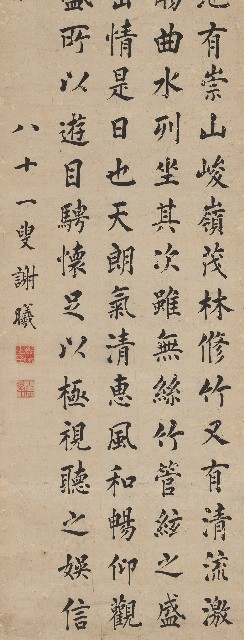 有崇山峻嶺茂林脩竹又有清流激
曲水列坐其次雖無絲竹管絃之盛
情是日也天朗氣清惠風和暢仰觀
所以遊目騁懷足以極視聽之娛信
八十一叟謝曦